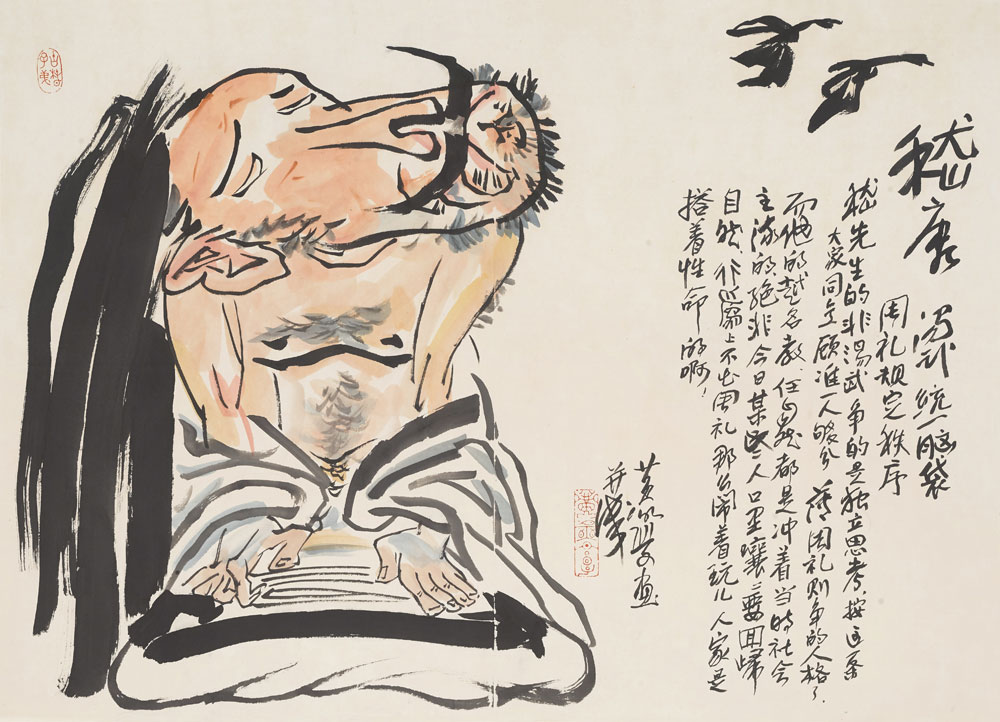 嵇康
汤武统一脑袋
周礼规定秩序
嵇先生的非汤武争的是独立思考，按这条
大家同意顾准一人够分 薄周礼则争的人格，
而他的越名教、任自然都是冲着当时社会
主流的，绝非今日某些人口里嚷嚷要回归
自然 行为上不出周礼那么闹着玩儿 人家是
搭着性命的啊！
黄永厚画
并